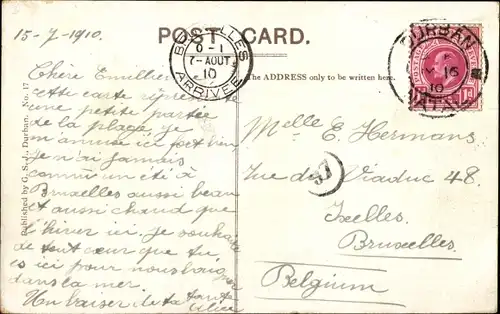 15-7-1910.
POST CARD.
BRUXELLES
0-1
7-AOUT
10
ARRIVEE
DURBAN
10
NATAL
POSTAGE
1d
The ADDRESS only to be written here.
Published by G. S. Durban. No. 17
Chère Emillie
cette carte représente
une petite partie
de la plage, je
m'amuse ici fort bien
je n'ai jamais
connu un été à
Bruxelles aussi beau
et aussi chaud que
l'hiver ici, je souhaite
de tout cœur que tu
es ici pour nous baigner
dans la mer.
Un baiser de ta tante
Alice
Melle E. Hermans
rue du Viaduc 48.
Ixelles.
Bruxelles.
Belgium
37